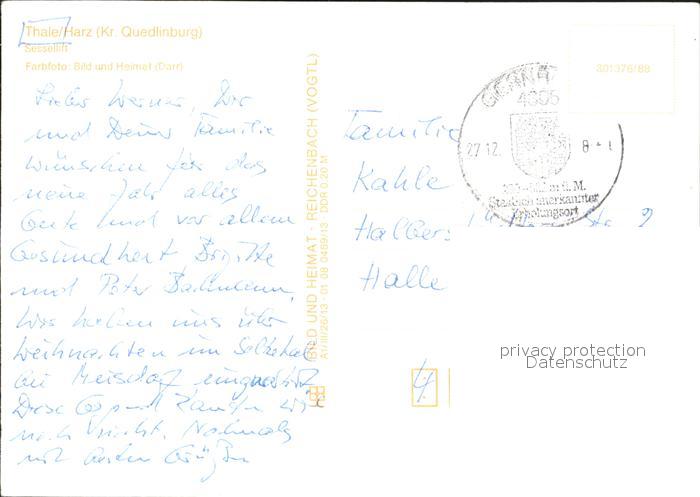 Thale/Harz (Kr. Quedlinburg)
Sessellift
Farbfoto: Bild und Heimat (Darr)
Lieber Werner, Dir
und Deiner Familie
wünschen für das
neue Jahr alles
Gute und vor allem
Gesundheit Brigitte
und Peter Bachmann.
Wir haben uns über
Weihnachten im Selketal
bei Meisdorf einquartiert
Diese Gegend kannten wir
noch nicht. Nochmals
mit besten Grüßen
BILD UND HEIMAT · REICHENBACH (VOGTL)
A1/III/26/13 01 08 0469/13 DDR 0,20 M
301376/88
GERNR
27.12.
8
m ü. M.
Staatlich anerkannter
Erholungsort
Familie
Kahle
Halle
4
privacy protection
Datenschutz